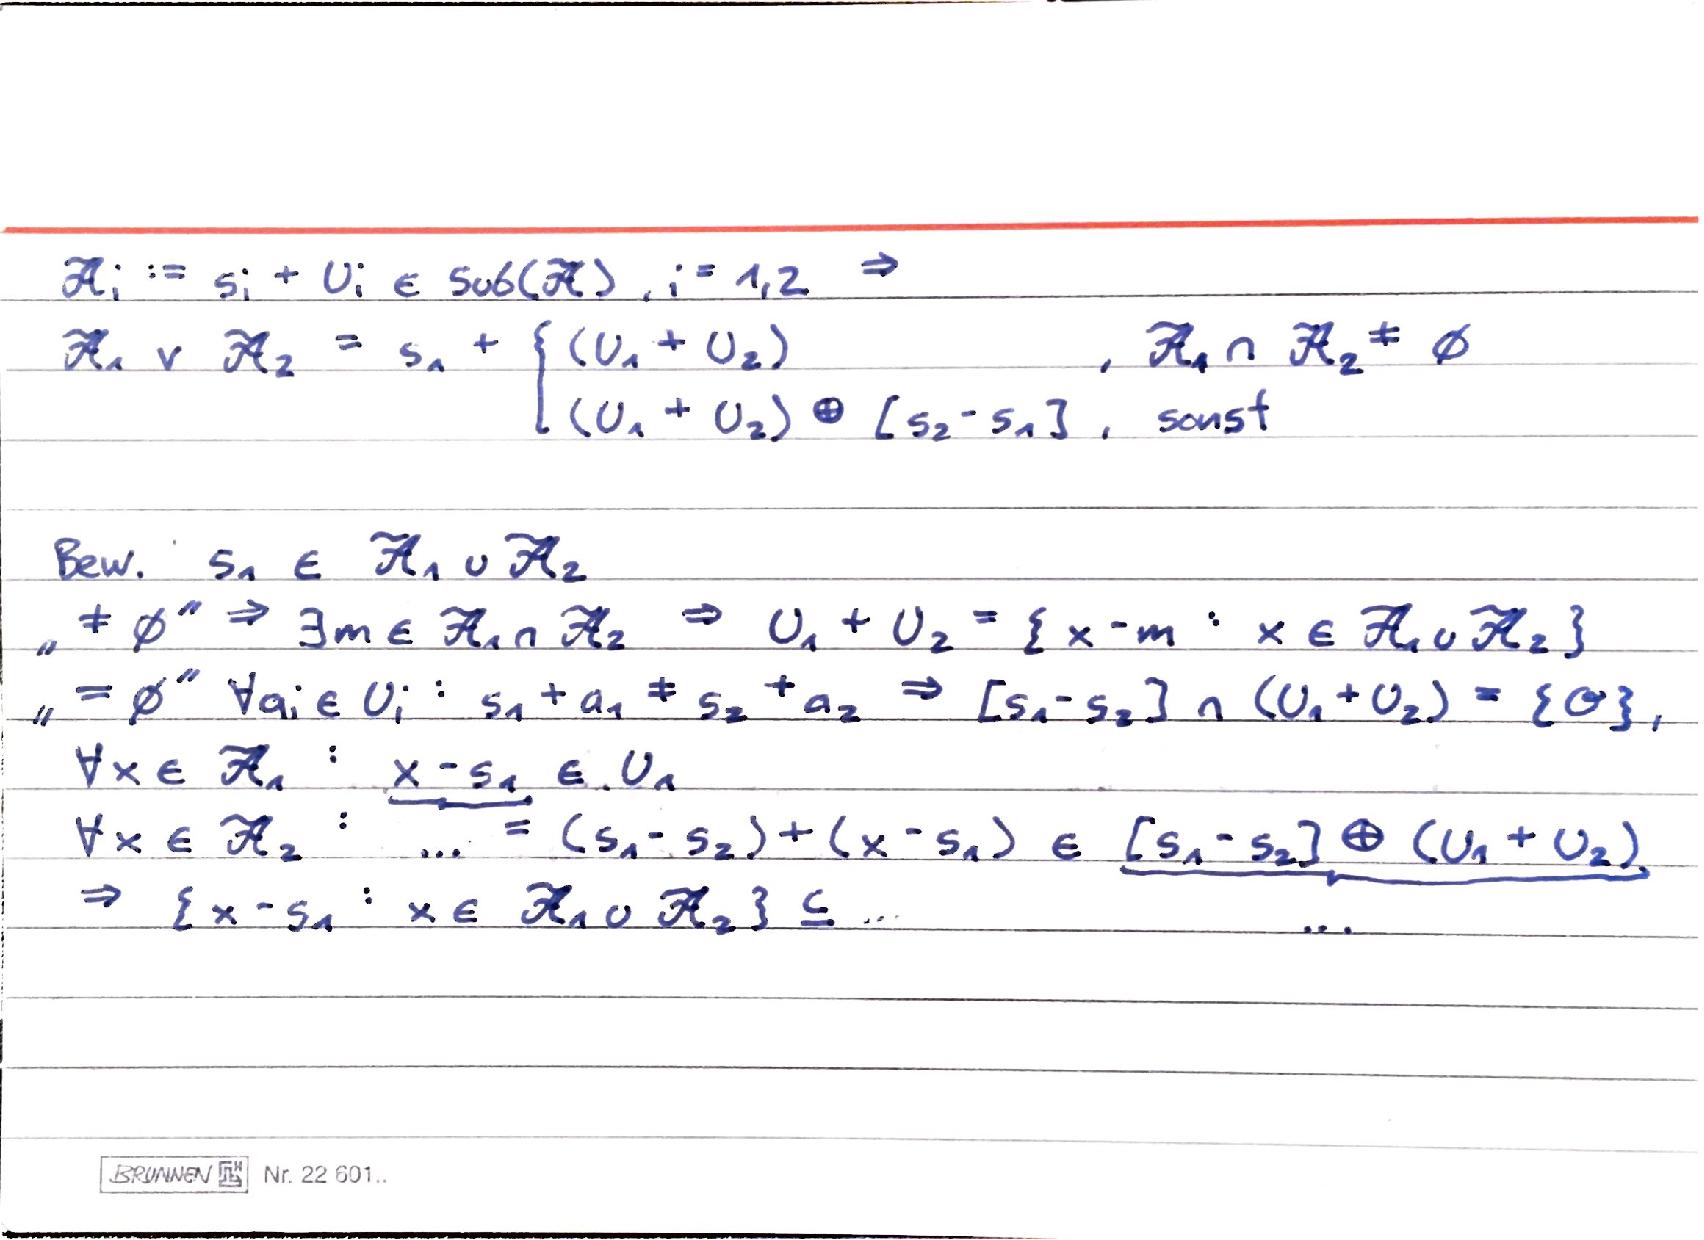 𝒜ᵢ := sᵢ + Uᵢ ∈ Sub(𝒜), i = 1,2 ⇒
𝒜₁ ∨ 𝒜₂ = s₁ + { (U₁ + U₂) , 𝒜₁ ∩ 𝒜₂ ≠ ∅
(U₁ + U₂) ⊕ [s₂ - s₁], sonst
Bew. s₁ ∈ 𝒜₁ ∪ 𝒜₂
„≠ ∅“ ⇒ ∃m ∈ 𝒜₁ ∩ 𝒜₂ ⇒ U₁ + U₂ = {x - m : x ∈ 𝒜₁ ∪ 𝒜₂}
„= ∅“ ∀aᵢ ∈ Uᵢ : s₁ + a₁ ≠ s₂ + a₂ ⇒ [s₁ - s₂] ∩ (U₁ + U₂) = {𝒪},
∀x ∈ 𝒜₁ : x - s₁ ∈ U₁
∀x ∈ 𝒜₂ : ... = (s₁ - s₂) + (x - s₁) ∈ [s₁ - s₂] ⊕ (U₁ + U₂)
⇒ {x - s₁ : x ∈ 𝒜₁ ∪ 𝒜₂} ⊆ ... ...
BRUNNEN Nr. 22 601..